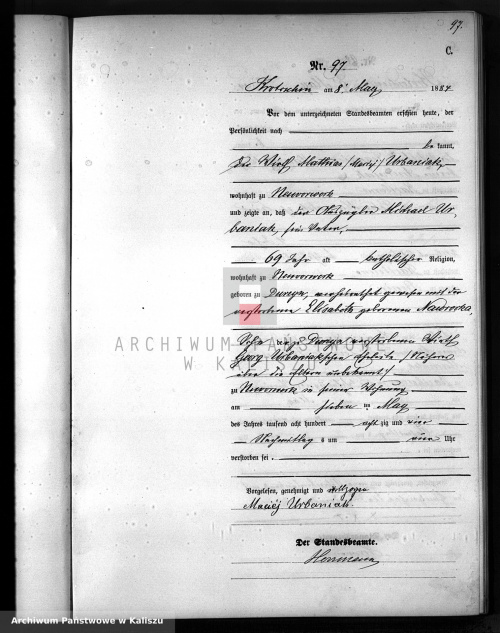 97.
C.
Nr. 97
Krotoschin am 8. May 1884
Vor dem unterzeichneten Standesbeamten erschien heute, der
Persönlichkeit nach
be kannt,
der Wirth Matthias /Maciej/ Urbaniak,
wohnhaft zu Neuvorwerk
und zeigte an, daß der Michael Ur-
baniak, sein Vater,
69 Jahr alt katholischer Religion,
wohnhaft zu Neuvorwerk
geboren zu verheirathet gewesen mit der
verstorbenen Elisabeth geborenen Nawrocka,
Sohn verstorbenen Wirth
Georg Urbaniakschen Eheleute /Näheres
über die Eltern unbekannt/
zu Neuvorwerk in seiner Wohnung
am sieben ten May
des Jahres tausend acht hundert acht zig und vier
Nachmittag s um vier Uhr
verstorben sei.
Vorgelesen, genehmigt und vollzogen
Maciéj Urbaniak
Der Standesbeamte.
ARCHIWUM PAŃSTWOWE
W KALISZU
Archiwum Państwowe w Kaliszu